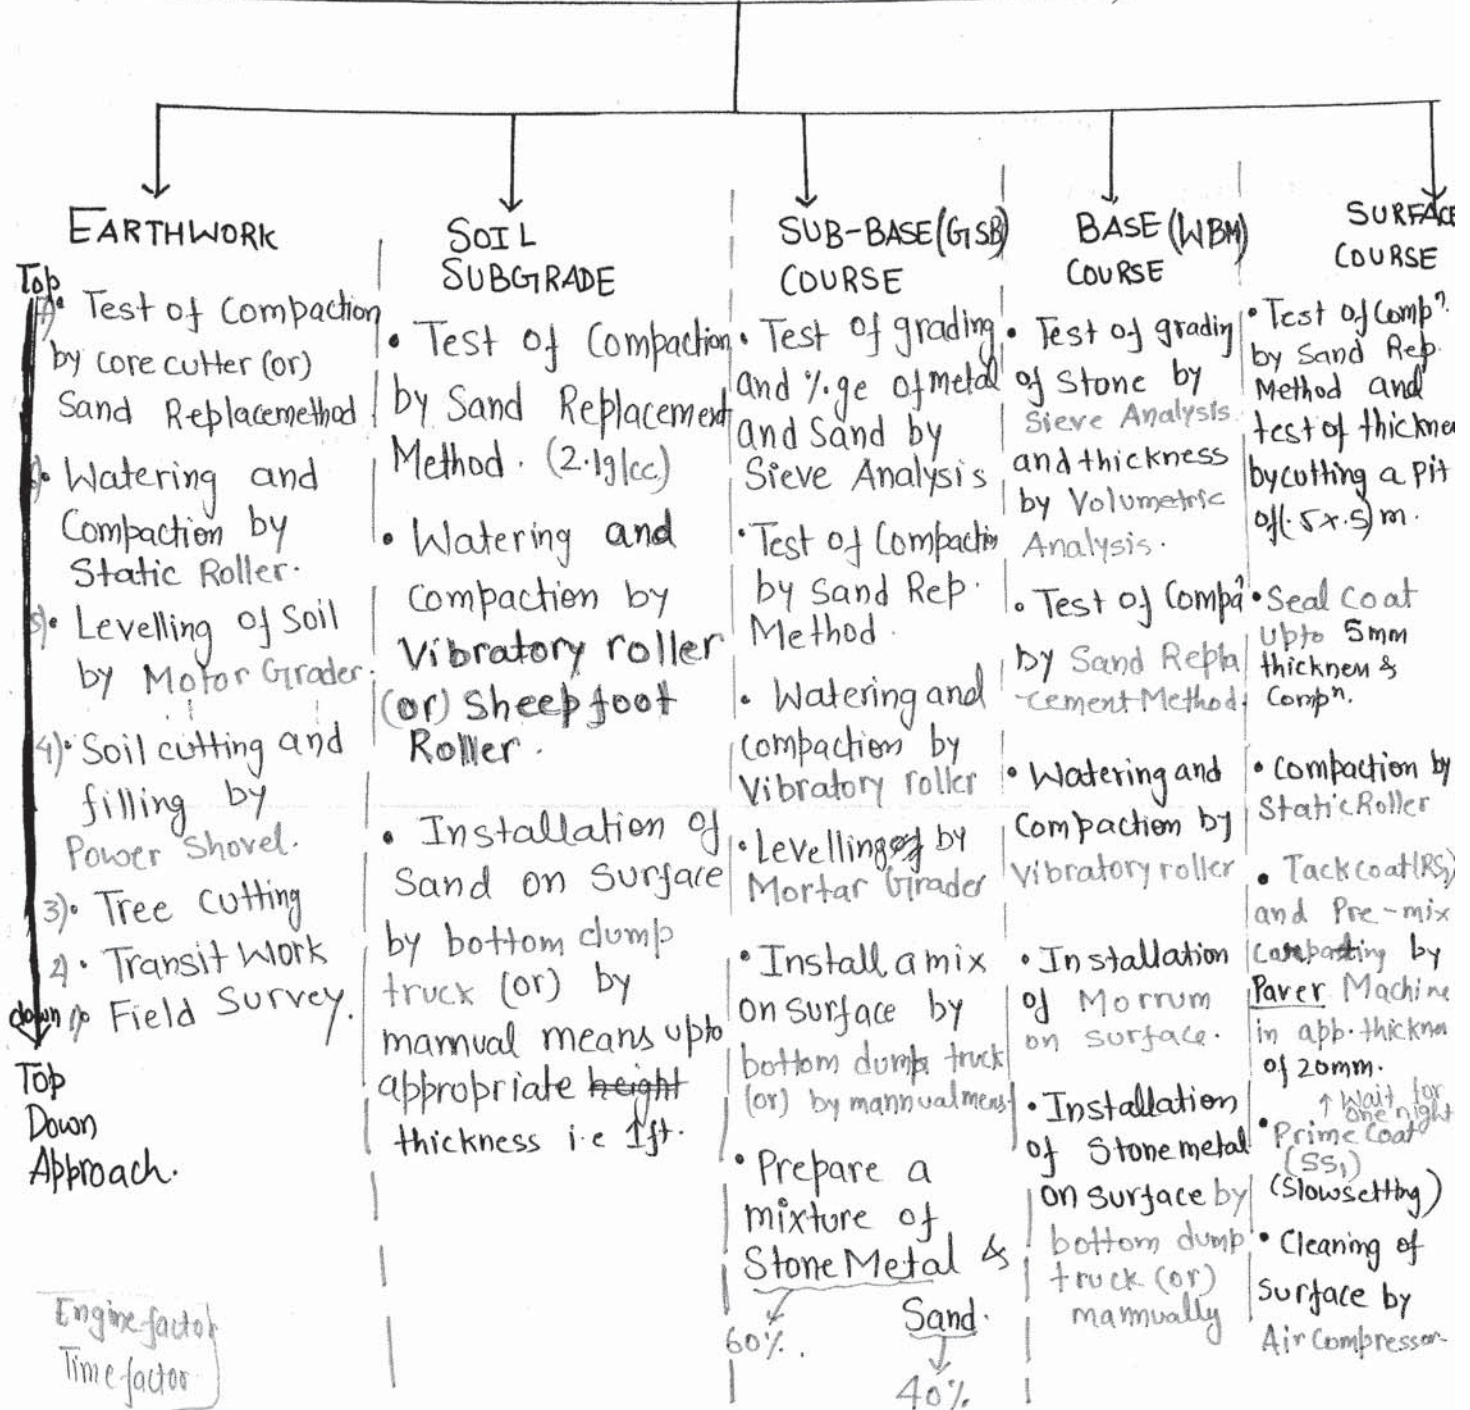 EARTHWORK
Top
• Test of Compaction
by core cutter (or)
Sand Replacemethod
• Watering and
Compaction by
Static Roller.
5)• Levelling of Soil
by Motor Grader.
4)• Soil cutting and
filling by
Power Shovel.
3)• Tree cutting
2)• Transit Work
down 1)• Field Survey.
Top
Down
Approach.
Engine factor
Time factor
SOIL
SUBGRADE
• Test of Compaction
by Sand Replacement
Method. (2.1g/cc)
• Watering and
compaction by
Vibratory roller
(or) Sheep foot
Roller.
• Installation of
Sand on Surface
by bottom dump
truck (or) by
mannual means upto
appropriate height
thickness i.e 1ft.
SUB-BASE(GSB)
COURSE
• Test of grading
and %ge of metal
and Sand by
Sieve Analysis
• Test of Compactio
by Sand Rep.
Method.
• Watering and
compaction by
Vibratory roller
• Levelling of by
Mortar Grader
• Install a mix
on surface by
bottom dump truck
(or) by mannual mens
• Prepare a
mixture of
Stone Metal &
Sand.
60%.
40%
BASE (WBM)
COURSE
• Test of gradin
of Stone by
Sieve Analysis
and thickness
by Volumetric
Analysis.
• Test of Compaⁿ
by Sand Repla
-cement Method.
• Watering and
Compaction by
Vibratory roller
• Installation
of Morrum
on surface.
• Installation
of Stone metal
on surface by
bottom dump
truck (or)
mannually
SURFACE
COURSE
• Test of Compⁿ.
by Sand Rep.
Method and
test of thickne
by cutting a pit
of (.5x.5) m.
• Seal Coat
upto 5mm
thickness &
Compⁿ.
• Compaction by
Static Roller
• Tack coat (RS)
and Pre-mix
by
Paver Machine
in app. thickne
of 20mm.
↑ Wait for
one night
• Prime Coat
(SS₁)
(Slowsetting)
• Cleaning of
Surface by
Air Compressor